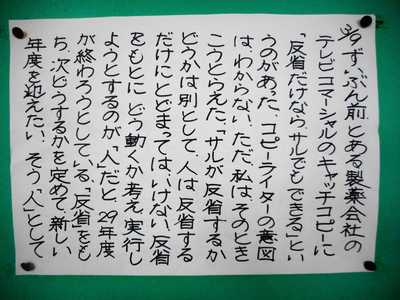 3/9ずいぶん前、とある製薬会社の
テレビコマーシャルのキャッチコピーに
「反省だけならサルでもできる」とい
うのがあった。コピーライターの意図
は、わからない。ただ、私は、そのとき
こうとらえた。「サルが反省するか
どうかは別として、人は、反省する
だけにとどまっては、いけない。反省
をもとに、どう動くか考え、実行し
ようとするのが「人」だと。29年度
が終わろうとしている。「反省」をも
ち、次どうするかを定めて、新しい
年度を迎えたい。そう、「人」として